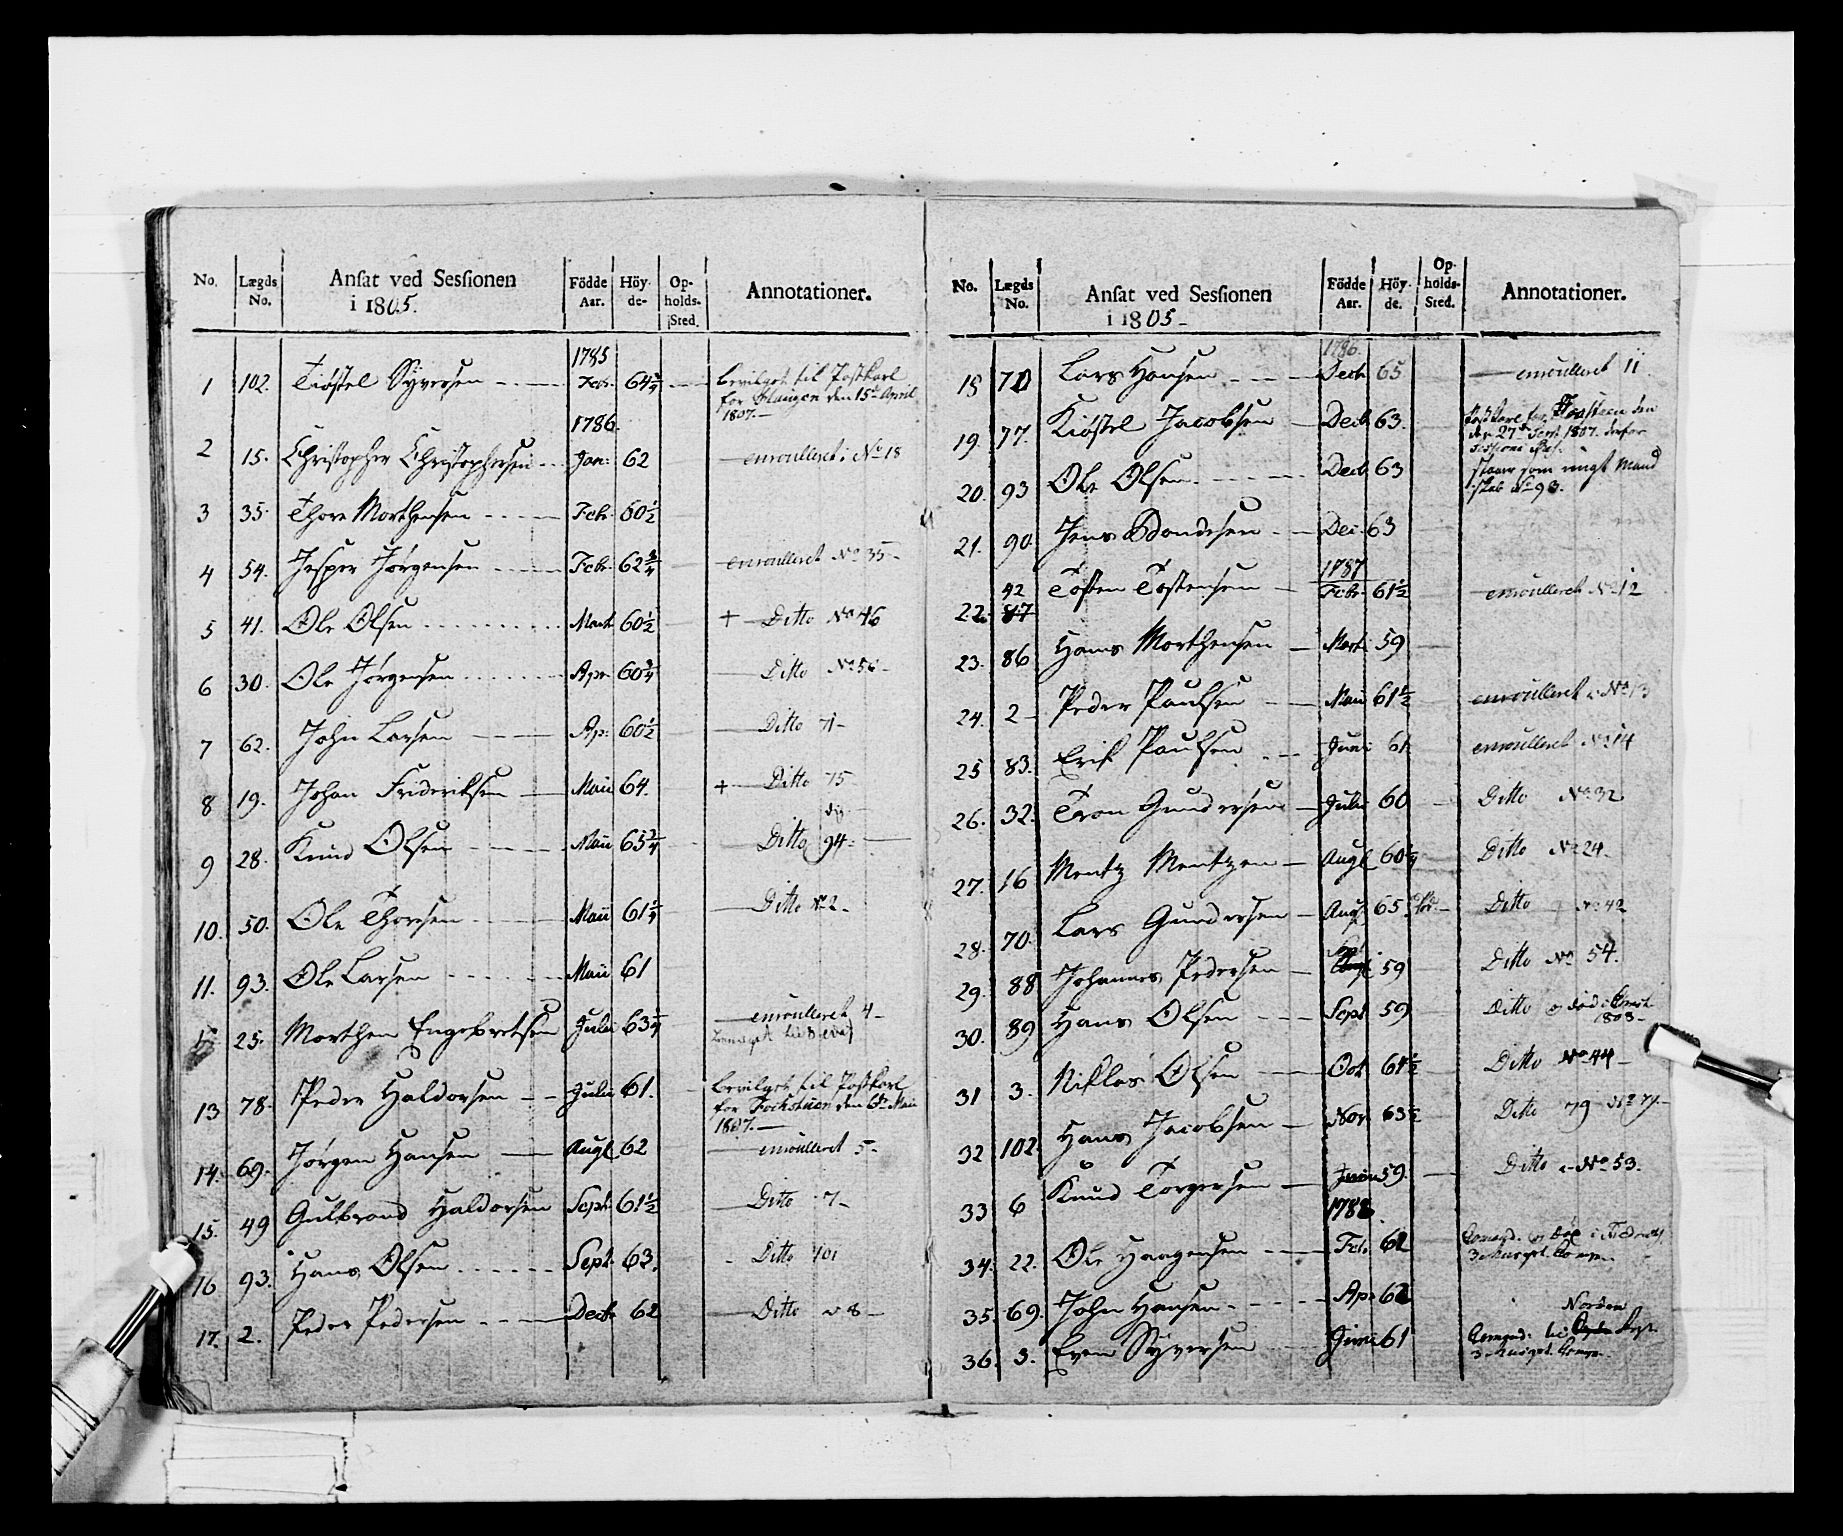 No. Lægds No. Ansat ved Sessionen i 1805. Födde Aar. Höyde- Opholds-Sted. Annotationer.
1785
1 102. Tiøstel Syversen Febr. 64¾ bevilget til Postkarl
for den 15de April
1807.
1786.
2 15. Christopher Christophersen Jan: 62 enroulleret i No 18
3 35. Thore Morthensen Febr. 60½
4 54. Jesper Jørgensen Febr. 62¾ enroulleret No 35
5 41. Ole Olsen Mart. 60½ + Ditto No 46
6 30. Ole Jørgensen Apr. 60¾ Ditto No 56
7 62. John Larsen Ap: 60½ Ditto 71
8 19. Johan Frideriksen Maii 64. + Ditto 75
9 28. Knud Olsen Maii 65¾ Ditto 94
10. 50. Ole Thorsen Maii 61¼ Ditto No 2
11. 93. Ole Larsen Maii 61
12 25. Morthen Engebretsen Julii 63¼ enroulleret 4
13 78. Peder Haldorsen Julii 61. bevilget til Postkarl
for Fochstuen den 6te Maii
1807.
14. 69. Jørgen Hansen Augt. 62 enroulleret 5
15. 49 Gulbrand Haldorsen Sept. 61½ Ditto 7
16 93. Hans Olsen Sept. 63. Ditto 101
17. 2. Peder Pedersen Decb. 62 Ditto 8
No. Lægds No. Ansat ved Sessionen i 1805 Födde Aar. Höyde. Opholds-Sted. Annotationer.
1786.
18 71 Lars Hansen Decb. 65 enroulleret 11
19. 77. Kiøstel Jacobsen Decb. 63. Postkarl for den
27de 1807.
20. 93 Ole Olsen Decb. 63 staaer som ungt Mand
skab No 93.
21. 90 Jens Dec. 63
1787
42
22. 87 Tosten Tostensen Febr. 61½ enroulleret No 12
23. 86 Hans Morthensen Mart. 59
24. 2 Peder Paulsen Maii 61½ enroulleret No 13
25 83. Erik Paulsen Junii 61 enroulleret No 14
26. 32. Tron Gundersen Julii 60 Ditto No 32
27. 16 Mentz Mentzen Augt. 60¼ Ditto No 24
28. 70. Lars Gundersen Aug. 65 Ditto No 42
29. 88 Johannes Pedersen Sept 59 Ditto No 54.
30. 89 Hans Olsen Sept 59 Ditto død i
1808
31 3. Niklas Olsen Oct 61½ Ditto No 44
32 102. Hans Jacobsen Nov. 63½ Ditto 79 No 77
33 6 Knud Torgersen Junii 59. Ditto No 53.
1788
34. 22. Ole Haagensen Feb. 62
35. 69. John Hansen Apr 62
36. 3. Even Syversen Junii 61 Norden